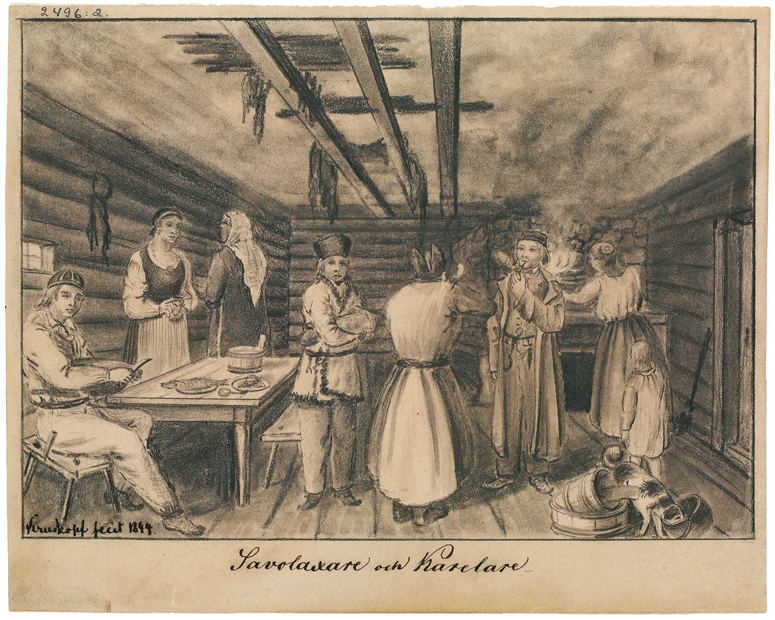 2496:2.
Kruskopf fecit 1844.
Savolaxare och Karelare